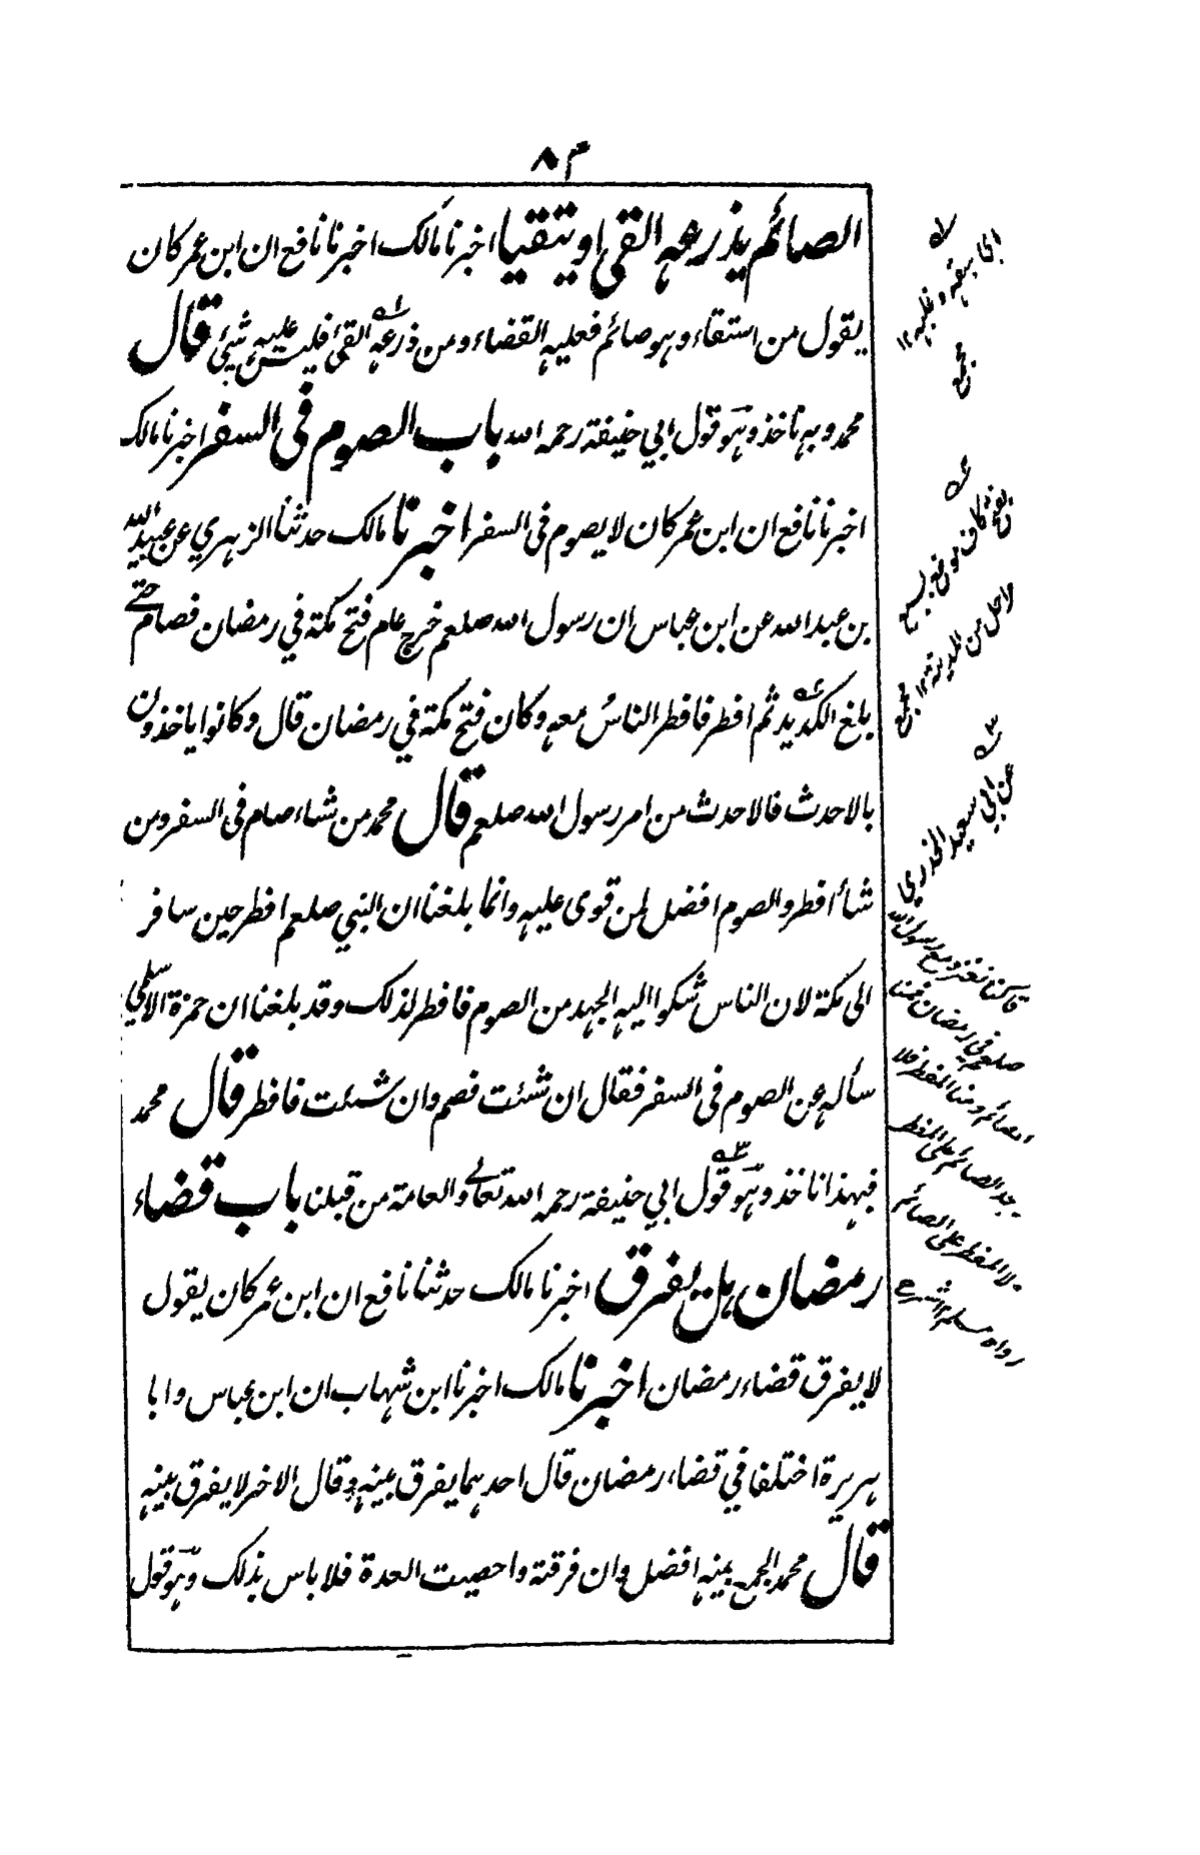 ٨٤
الصائم يذرعه القي او يتقيا اخبرنا مالك اخبرنا نافع ان ابن عمر كان
يقول من استقاء وهو صائم فعليه القضاء ومن ذرعه القئ فليس عليه شئ قال
محمد وبه ناخذ وهو قول ابي حنيفة رحمه الله باب الصوم فى السفر اخبرنا مالك
اخبرنا نافع ان ابن عمر كان لا يصوم فى السفر اخبرنا مالك حدثنا الزهري عن عبيد الله
بن عبد الله عن ابن عباس ان رسول الله صلعم خرج عام فتح مكة في رمضان فصام حتے
بلغ الكديد ثم افطر فافطر الناس معه وكان فتح مكة في رمضان قال وكانوا ياخذون
بالاحدث فالاحدث من امر رسول الله صلعم قال محمد من شاء صام فى السفر ومن
شاء افطر والصوم افضل لمن قوى عليه وانما بلغنا ان النبي صلعم افطر حين سافر
الى مكة لان الناس شكوا اليه الجهد من الصوم فافطر لذلك وقد بلغنا ان حمزة الاسلمي
سأله عن الصوم فى السفر فقال ان شئت فصم وان شئت فافطر قال محمد
فبهذا ناخذ وهو قول ابي حنيفة رحمه الله تعالے والعامة من قبلنا باب قضاء
رمضان هل يفرق اخبرنا مالك حدثنا نافع ان ابن عمر كان يقول
لا يفرق قضاء رمضان اخبرنا مالك اخبرنا ابن شهاب ان ابن عباس وابا
هريرة اختلفا في قضاء رمضان قال احدهما يفرق بينه وقال الاخر لا يفرق بينه
قال محمد الجمع بينه افضل وان فرقته واحصيت العدة فلا باس بذلك وهو قول
اى سبقه وغلبه ١٢
مجمع
بفتح كاف
مراحل من المدينة ١٢ مجمع
عن ابي سعيد الخدري
قال كنا نغزو مع رسول الله
صلعم في رمضان فمنا
الصائم ومنا المفطر فلا
يجد الصائم على المفطر
ولا المفطر على الصائم
رواه مسلم ١٢